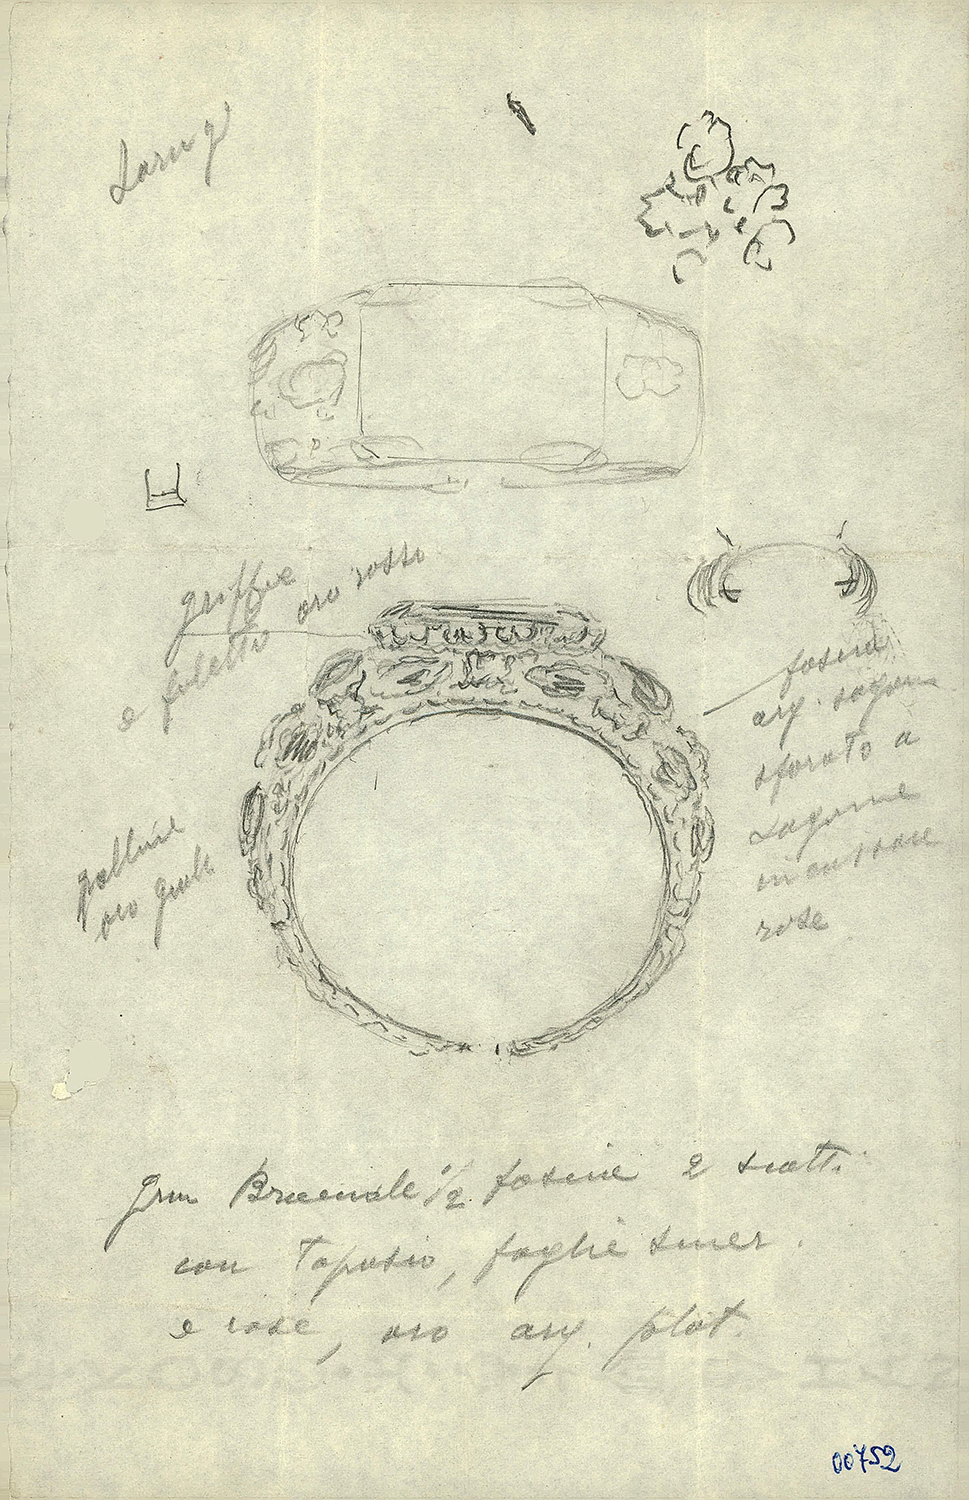 griffie
e filetto oro rosso
fascia
arg. sagom
sforato a
sagome
incassare
rose
palline
oro giallo
Gran Bracciale 1/2 fascie 2 scatti
con Topasio, foglie smer.
e rose, oro arg. plat.
00752